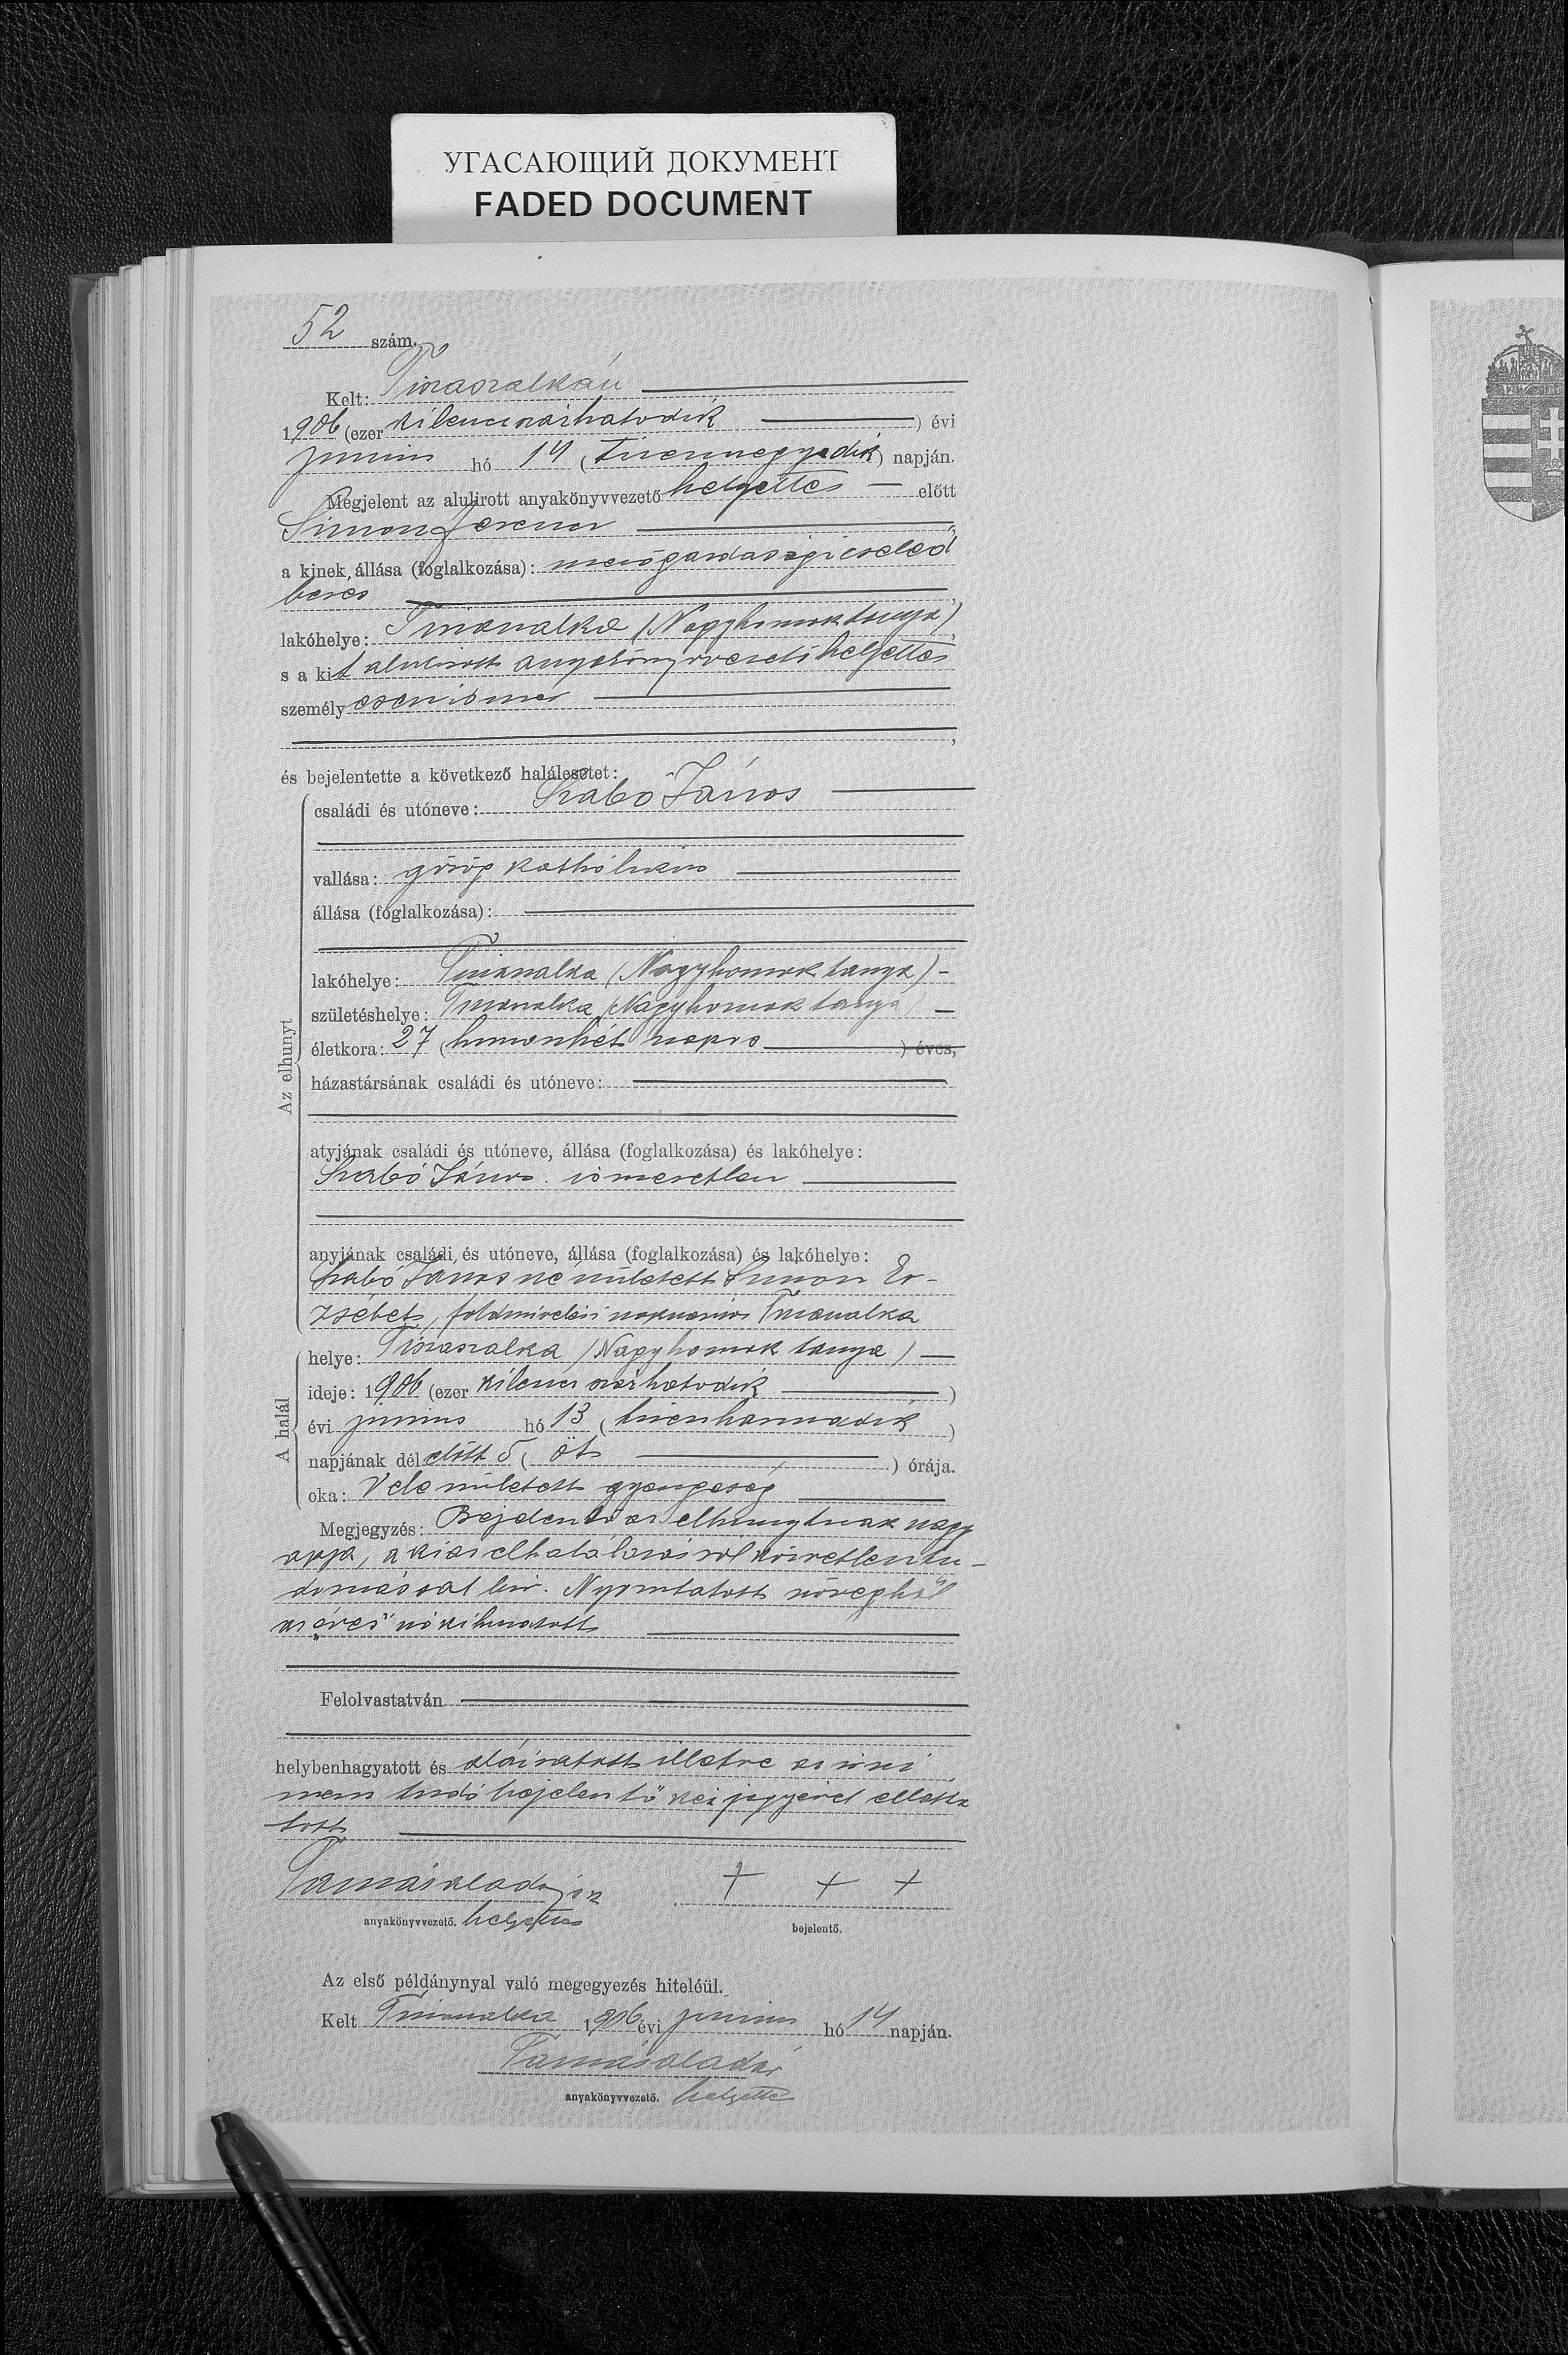 УГАСАЮЩИЙ ДОКУМЕНТ
FADED DOCUMENT
52 szám.
Kelt: Tiszaszalkán
1906 (ezer kilenczszázhatodik ) évi
junius hó 14 (tizennegyedik) napján.
Megjelent az alulirott anyakönyvvezető helyettes előtt
Simon Ferencz
a kinek állása (foglalkozása): mezőgazdasági cseléd
béres
lakóhelye: Tiszaszalka (Nagyhomok tanya),
s a kit alulirott anyakönyvvezető helyettes
személyesen ismer
és bejelentette a következő halálesetet:
Az elhunyt
családi és utóneve: Szabó János
vallása: görög katholikus
állása (foglalkozása):
lakóhelye: Tiszaszalka (Nagyhomok tanya)
születéshelye: Tiszaszalka (Nagyhomok tanya
életkora: 27 (huszonhét napos ) éves,
házastársának családi és utóneve:
atyjának családi és utóneve, állása (foglalkozása) és lakóhelye:
Szabó János ismeretlen
anyjának családi és utóneve, állása (foglalkozása) és lakóhelye:
Szabó Jánosné született Simon Er-
zsébet, földmivelési napszámos Tiszaszalka
A halál
helye: Tiszaszalka (Nagyhomok tanya)
ideje: 1906 (ezer kilencz százhatodik )
évi junius hó 13 (tizenharmadik )
napjának dél előtt 5 ( öt ) órája.
oka: Vele született gyengeség
Megjegyzés: Bejelentő az elhunytnak nagy
apja, a ki az elhalálozásról közvetlen tu-
domással bir. Nyomtatott szövegből
az „éves" szó kihuzatott
Felolvastatván
helybenhagyatott és aláiratott illetve az irni
nem tudó bejelentő kézjegyével elláta
tott
Tamás Aladár s k
anyakönyvvezető. helyettes
+ + +
bejelentő.
Az első példánynyal való megegyezés hiteléül.
Kelt Tiszaszalka 1906 évi junius hó 14 napján.
Tamás Aladár
anyakönyvvezető. helyettes